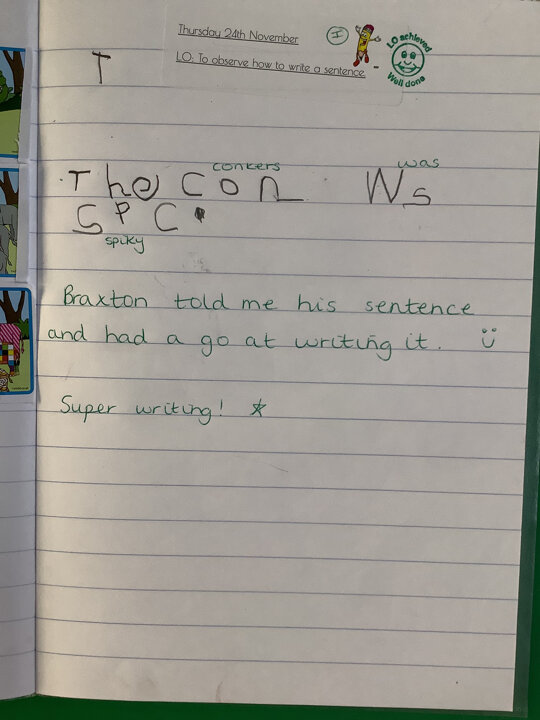 Thursday 24th November
I
LO achieved
Well done
LO: To observe how to write a sentence
T
conkers was
The Con Ws
SPC.
spiky
Braxton told me his sentence
and had a go at writing it.
Super writing!